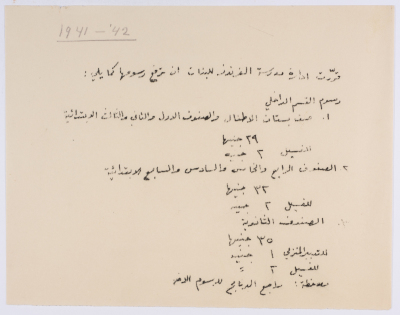 1941-'42
قررت ادارة مدرسة الفرندز للبنات ان ترفع رسومها كما يلي :
رسوم القسم الداخلي
١. صف بستان الاطفال والصفوف الاول والثاني والثالث الابتدائية
٢٩ جنيها
للغسيل ٢ جنيه
٢ الصفوف الرابع والخامس والسادس والسابع الابتدائية
٣٢ جنيها
للغسيل ٢ جنيه
٣. الصفوف الثانوية
٣٥ جنيها
للتدبير المنزلي ١ جنيه
للغسيل ٢ =
ملاحظة : راجع البرنامج للرسوم الاخرى